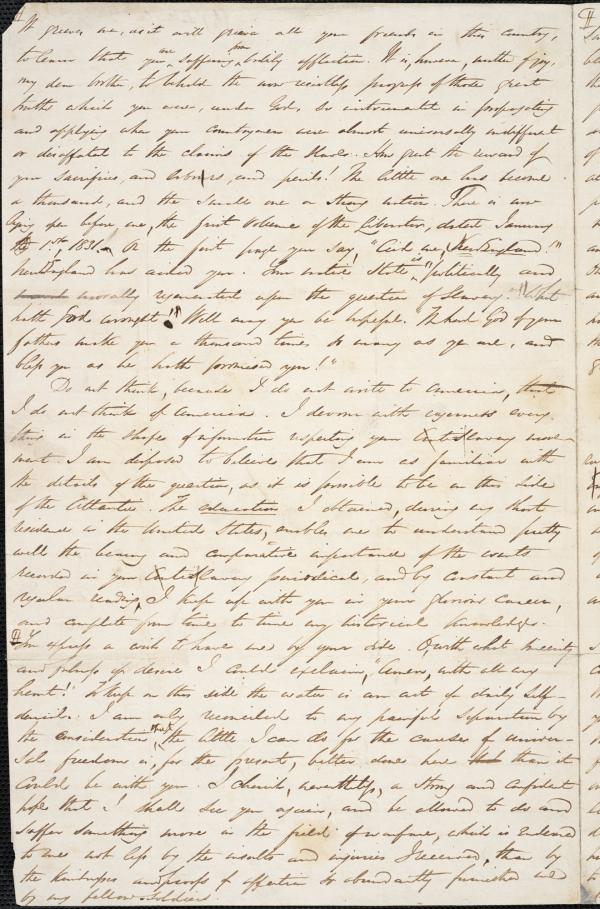 It grieves me, as it will grieve all your friends in this country,
to learn that you are suffering from bodily affliction. It is, however, matter of joy,
my dear brother, to behold the now resistless progress of those great
truths which you were, under God, so instrumental in propagating
and applying when your countrymen were almost universally indifferent
or disaffected to the claims of the slaves. How great the reward of
your sacrifices, and labors, and perils! The little one has become
a thousand, and the small one a strong nation. There is now
lying open before me, the first volume of the Liberator, dated January
1st 1831. On the first page you say, "Aid me, New England!"
New England has aided you. Your native State is "politically and
morally regenerated upon the question of Slavery." "What
hath God wrought!" Well may you be hopeful. "The Lord God of your
fathers make you a thousand times so many as ye are, and
bless you as he hath promised you!"
Do not think, because I do not write to America, that
I do not think of America. I devour with eagerness every
thing in the shape of information respecting your Anti Slavery move-
ment. I am disposed to believe that I am as familiar with
the details of the question, as it is possible to be on this side
of the Atlantic. The education I obtained, during my short
residence in the United States, enables me to understand pretty
well the bearing and comparative importance of the events
recorded in your Anti Slavery periodical, and by constant and
regular reading, I keep up with you in your glorious career,
and complete from time to time my historical knowledge.
You express a wish to have me by your side. O, with what sincerity
and fulness of desire I could exclaim, "Amen, with all my
heart!" To keep on this side the water is an act of daily self-
denial. I am only reconciled to my painful separation by
the consideration that the little I can do for the cause of univer-
sal freedom is, for the present, better done here than it
could be with you. I cherish, nevertheless, a strong and confident
hope that I shall see you again, and be allowed to do and
suffer something more in the field of warfare, which is endeared
to me not less by the insults and injuries I received, than by
the kindness and proofs of affection so abundantly furnished me
by my fellow soldiers.